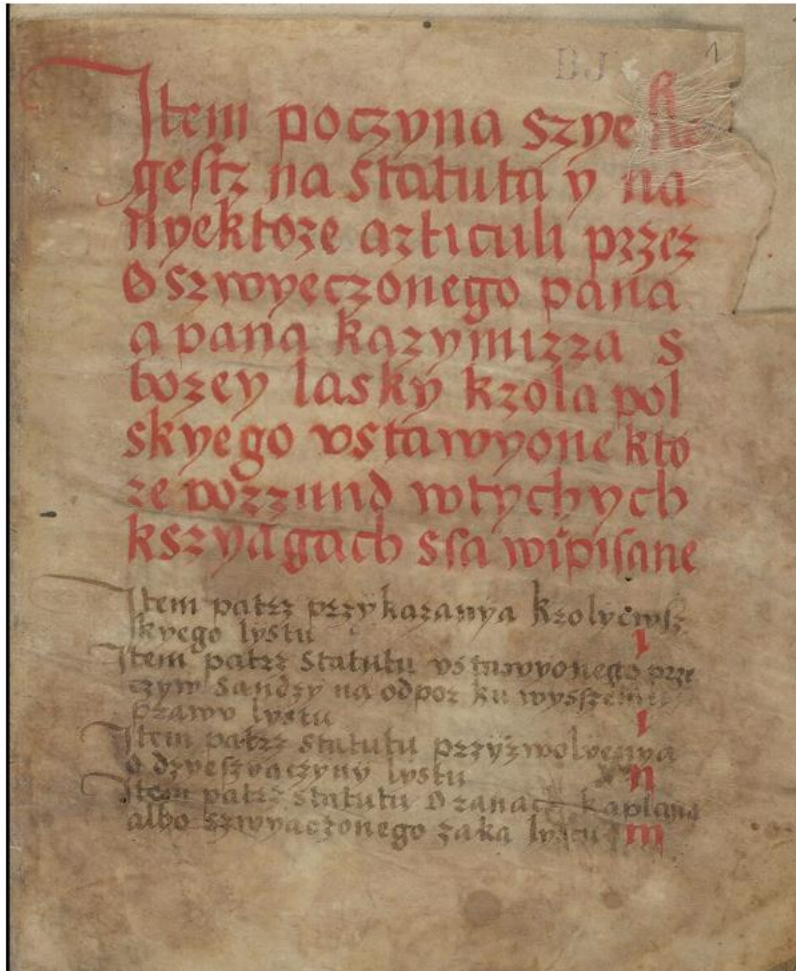 BJ 1
Item poczyna szye Re
gestz na statuta y na
nyektore articuli przez
Oszwyeczonego pana
a pana kazymirza s
bozey lasky krola pol
skyego vstawyone kto
re vozzund wtychych
kszyagach ssa wipisane
Item patrz przykazanya krolyewsz
kyego lystu i
Item patrz statutu vstawyonego prze
czyw sandzy na odpor ku wysszemu
prawu lystu i
Item patrz statutu przyzwolyenya
o dzyeszyaczyny lystu ii
Item patrz statutu o ranacz kaplana
albo szwyaczonego zaka lystu iii